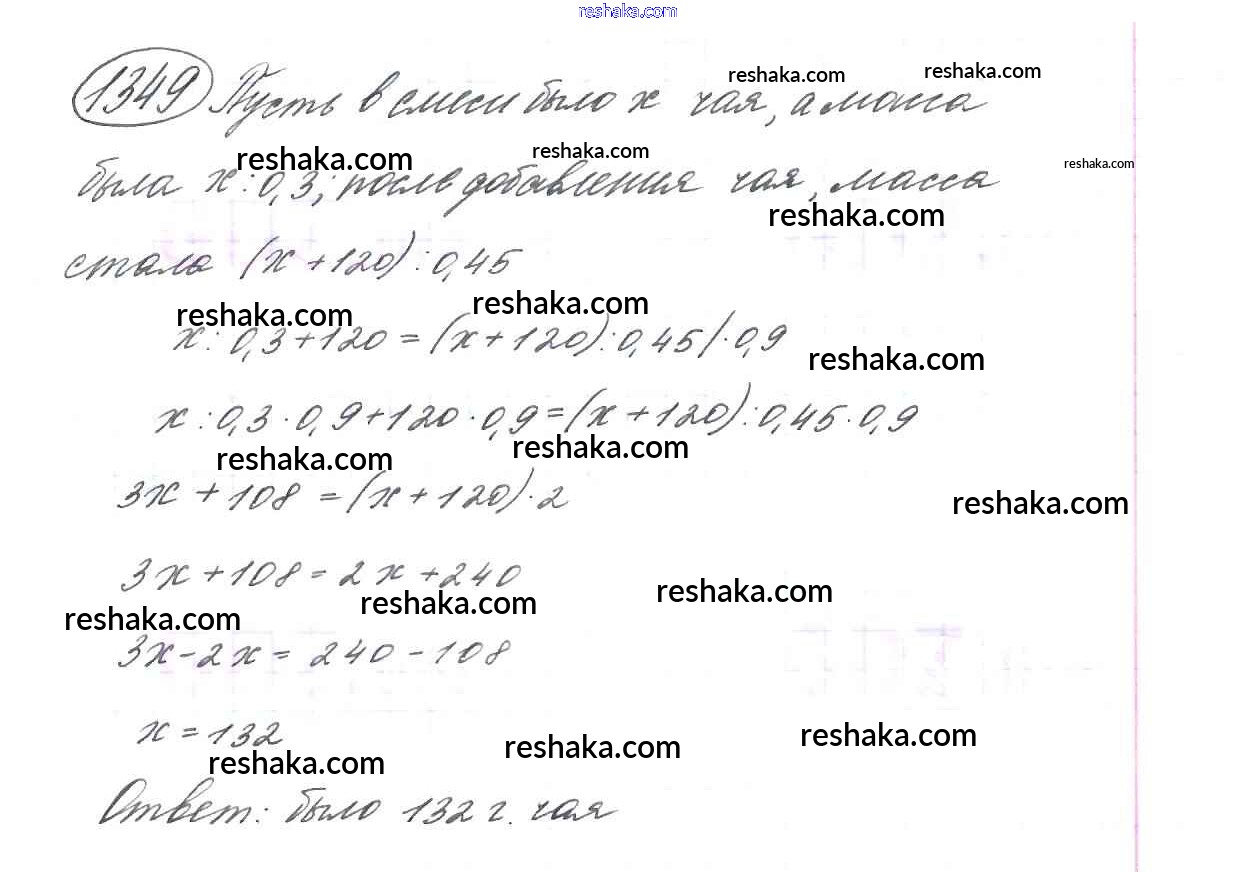 reshaka.com
1349 Пусть в смеси было x чая, а масса
reshaka.com reshaka.com
была x : 0,3; после добавления чая, масса
reshaka.com reshaka.com reshaka.com
reshaka.com
стала (x + 120) : 0,45
reshaka.com reshaka.com
x : 0,3 + 120 = (x + 120) : 0,45 / · 0,9
reshaka.com
x : 0,3 · 0,9 + 120 · 0,9 = (x + 120) : 0,45 · 0,9
reshaka.com reshaka.com
3x + 108 = (x + 120) · 2
reshaka.com
3x + 108 = 2x + 240
reshaka.com reshaka.com reshaka.com
3x - 2x = 240 - 108
x = 132
reshaka.com reshaka.com reshaka.com
Ответ: было 132 г. чая